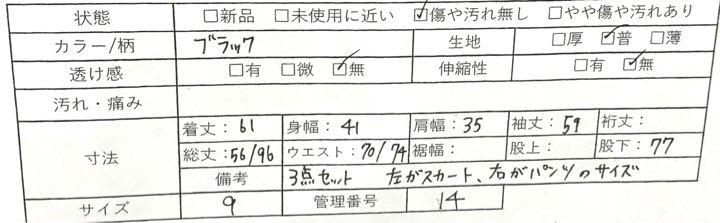 状態 □新品 □未使用に近い ☑傷や汚れ無し □やや傷や汚れあり
カラー/柄 ブラック 生地 □厚 ☑普 □薄
透け感 □有 □微 ☑無 伸縮性 □有 ☑無
汚れ・痛み
寸法 着丈：61 身幅：41 肩幅：35 袖丈：59 裄丈：
総丈：56/96 ウエスト：70/74 裾幅： 股上： 股下：77
備考 3点セット 左がスカート、右がパンツのサイズ
サイズ 9 管理番号 14